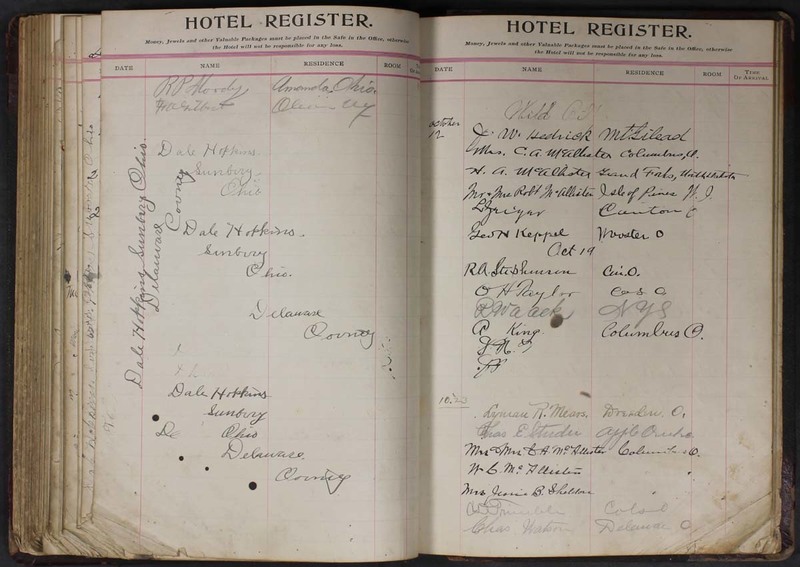 HOTEL REGISTER.
Money, Jewels and other Valuable Packages must be placed in the Safe in the Office, otherwise
the Hotel will not be responsible for any loss.
DATE NAME RESIDENCE ROOM
R P Moody Amanda, Ohio.
Dale Hopkins.
Sunbury
Ohio
Dale Hopkins Sunbury Ohio.
Delaware County
Dale Hopkins.
Sunbury
Ohio.
Delaware
County
Dale Hopkins
Sunbury
De Ohio
Delaware
County
HOTEL REGISTER.
Money, Jewels and other Valuable Packages must be placed in the Safe in the Office, otherwise
the Hotel will not be responsible for any loss.
DATE NAME RESIDENCE ROOM TIME OF ARRIVAL
October
12 J. W. Hedrick Mt Gilead
Mrs. C. A. McAllister Columbus, O.
H. A. McAllister Grand Forks,
Mr & Mrs Robt McAllister Isle of Pines W. I.
Canton O
Geo H Keppel Wooster O
Oct 19
R A Stephenson Cin. O.
O H Taylor
N Y S
A King Columbus O.
10.20
Lyman R. Mears. Dresden O.
Chas E Studer Apple Creek O
Mr & Mrs C A McAllister Columbus O.
W C. McAllister
Mrs Jennie B. Sheldon
Chas Watson Delaware O